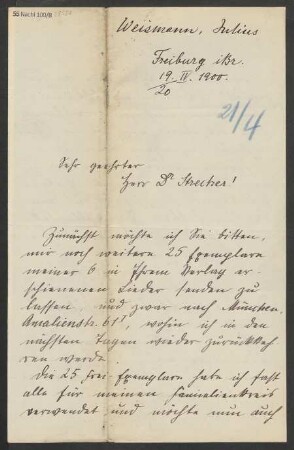 55 Nachl 100/B
Weismann, Julius
Freiburg i/Br.
19. IV. 1900.
20
21/4
Sehr geehrter
Herr Dr Strecker!
Zunächst möchte ich Sie bitten,
mir noch weitere 25 Exemplare
meiner 6 in Ihrem Verlag er-
schienenen Lieder senden zu
lassen und zwar nach München.
Amalienstr. 61 I, wohin ich in den
nächsten Tagen wieder zurückkeh-
ren werde.
Die 25 Frei-Exemplare habe ich fast
alle für meinen Familienkreis
verwendet und möchte nun auch